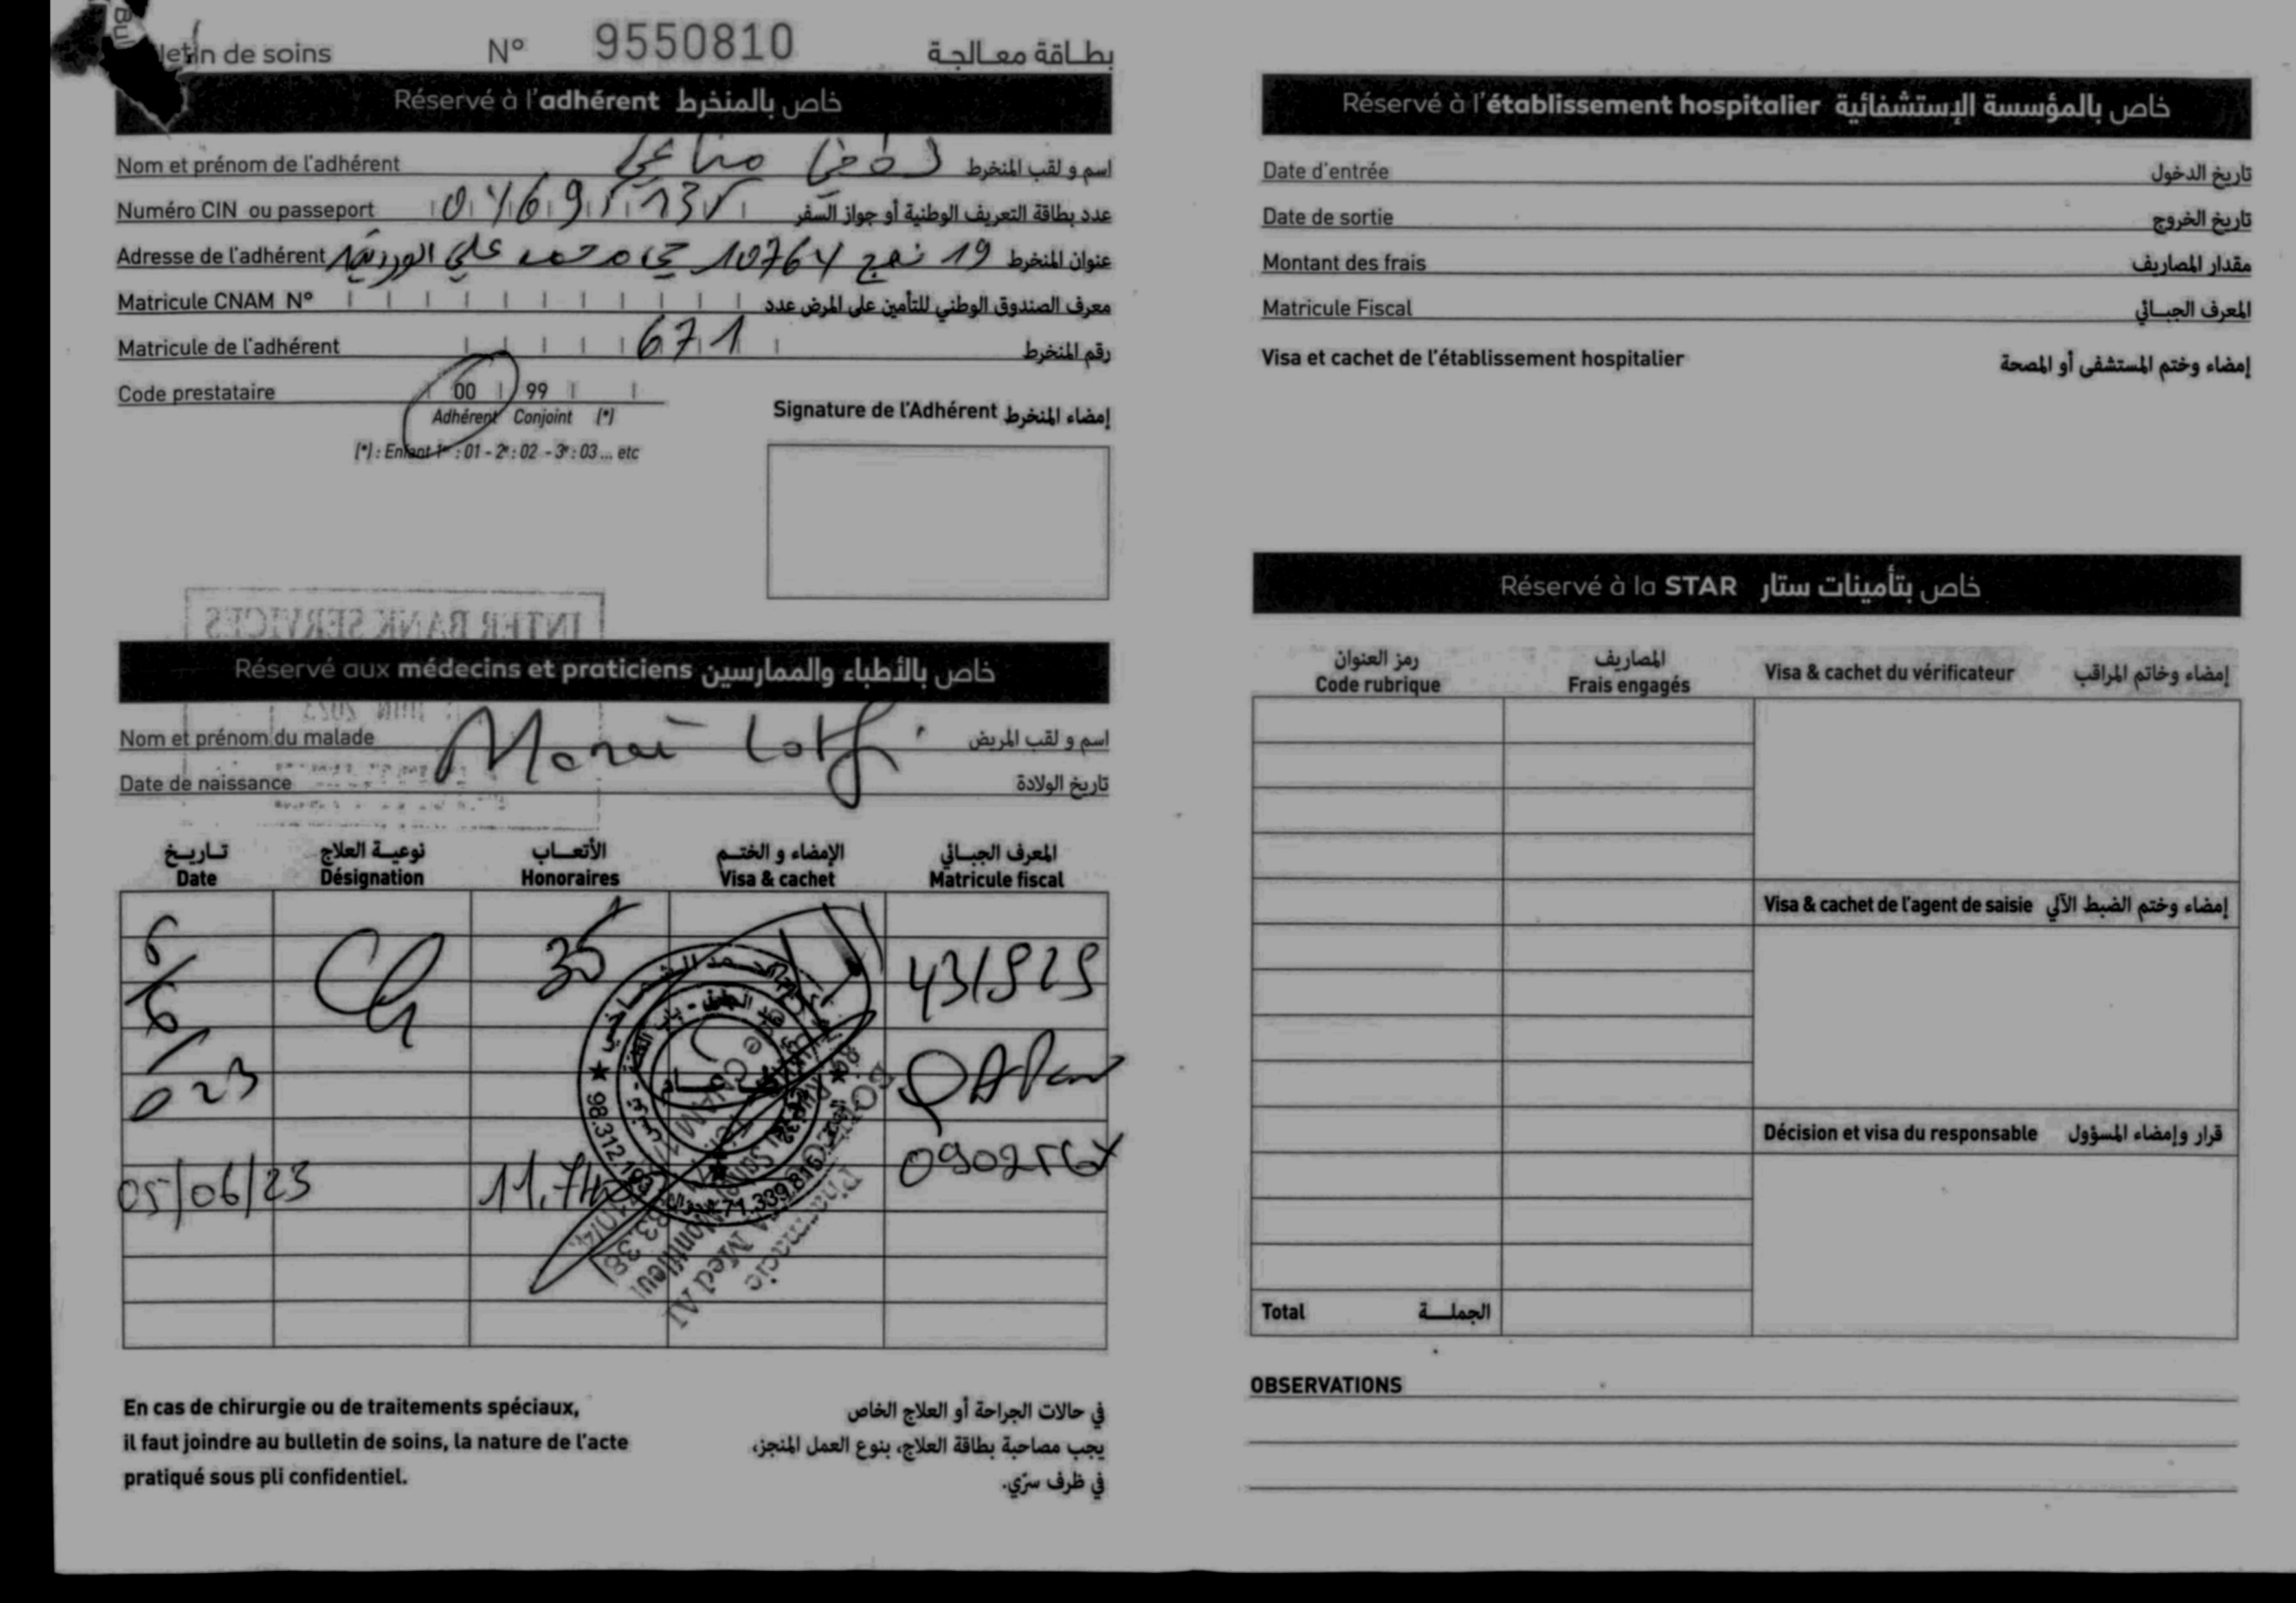 Bulletin de soins N° 9550810 بطاقة معالجة
Réservé à l'adhérent خاص بالمنخرط
Nom et prénom de l'adhérent لطفي مناعي اسم و لقب المنخرط
Numéro CIN ou passeport عدد بطاقة التعريف الوطنية أو جواز السفر
Adresse de l'adhérent 19 نهج 10764 حي محمد علي الوردية عنوان المنخرط
Matricule CNAM N° معرف الصندوق الوطني للتأمين على المرض عدد
Matricule de l'adhérent 671 رقم المنخرط
Code prestataire 00 99
Adhérent Conjoint (*)
(*) : Enfant 1er : 01 - 2e : 02 - 3e : 03 ... etc
Signature de l'Adhérent إمضاء المنخرط
INTER BANK SERVICES
Réservé aux médecins et praticiens خاص بالأطباء والممارسين
JUIN 2023
Nom et prénom du malade Manai Lotfi اسم و لقب المريض
Date de naissance تاريخ الولادة
تاريخ نوعية العلاج الأتعاب الإمضاء و الختم المعرف الجبائي
Date Désignation Honoraires Visa & cachet Matricule fiscal
6/6/023 35 431929
05/06/23 11,740
98.312.19
71.339.815
Pharmacie
Med Ali
Montfleury
En cas de chirurgie ou de traitements spéciaux,
il faut joindre au bulletin de soins, la nature de l'acte
pratiqué sous pli confidentiel.
في حالات الجراحة أو العلاج الخاص
يجب مصاحبة بطاقة العلاج، بنوع العمل المنجز،
في ظرف سرّي.
Réservé à l'établissement hospitalier خاص بالمؤسسة الإستشفائية
Date d'entrée تاريخ الدخول
Date de sortie تاريخ الخروج
Montant des frais مقدار المصاريف
Matricule Fiscal المعرف الجبائي
Visa et cachet de l'établissement hospitalier إمضاء وختم المستشفى أو المصحة
Réservé à la STAR خاص بتأمينات ستار
رمز العنوان المصاريف
Code rubrique Frais engagés Visa & cachet du vérificateur إمضاء وخاتم المراقب
Visa & cachet de l'agent de saisie إمضاء وختم الضبط الآلي
Décision et visa du responsable قرار وإمضاء المسؤول
Total الجملة
OBSERVATIONS